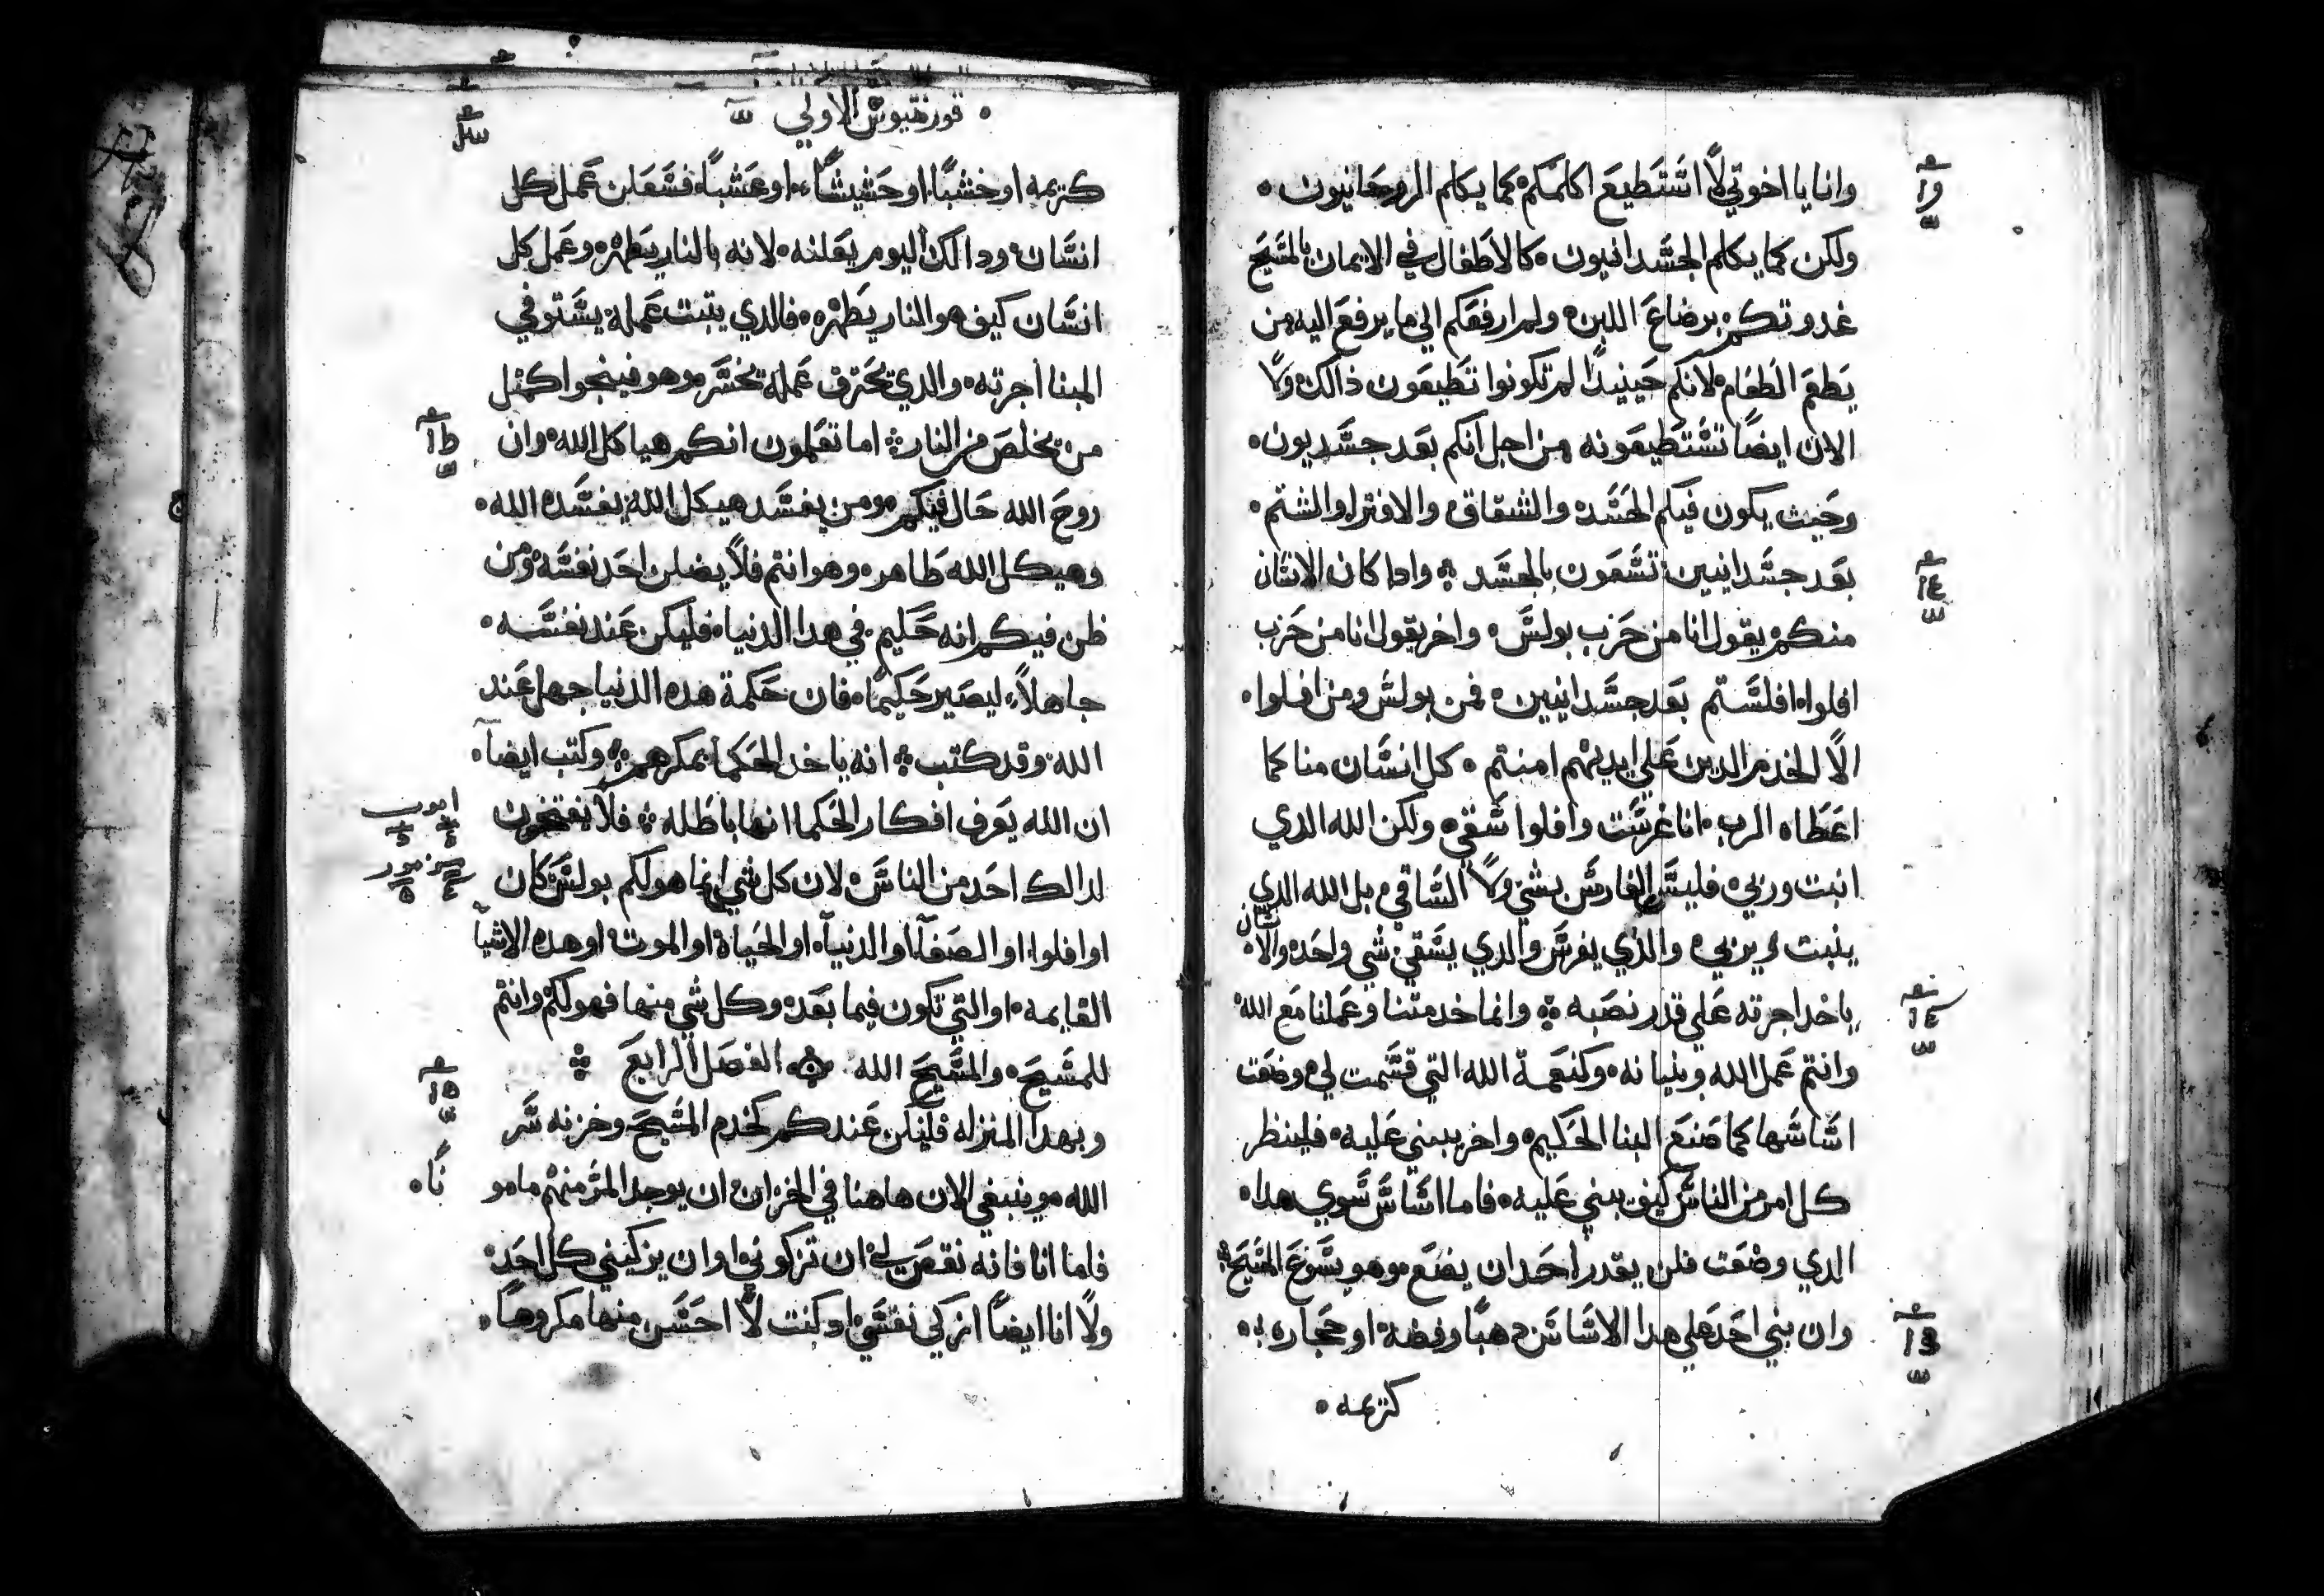 وانا يا اخوتي لا استطيع اكلمكم كما يكلم الروحانيون
ولكن كما يكلم الجسدانيون كالاطفال في الايمان بالمسيح
غدوتكم برضاع اللبن ولم ارفعكم الي ما يرفع اليه من
يطعم الطعام لانكم حينيدا لم تكونوا تطيعون ذالك ولا
الان ايضا تستطيعونه من اجل انكم بعد جسديون
وحيث يكون فيكم الحسد والشقاق والافترا والشتم
بعد جسدانيين تسعون بالجسد وادا كان الانسان
منكم يقول انا من حزب بولس واخر يقول انا من حزب
افلوا افلستم بعد جسدانيين فمن بولس ومن افلوا
الا الخدم الدين علي ايديهم امنتم كل انسان منا كما
اعطاه الرب انا غرست وافلوا سقي ولكن الله الدي
انبت وربي فليس الغارس بشي ولا الساقي بل الله الدي
ينبت ويربي والذي يغرس والدي يسقي شي واحد والانسان
ياخد اجرته علي قدر نصبه وانما خدمتنا وعملنا مع الله
وانتم عمل الله وبنيانه وكنعمة الله التي قسمت لي وضعت
اساسها كما صنع البنا الحكيم واخر يبني عليه فلينظر
كل امر من الناس كيف يبني عليه فاما اساس سوي هدا
الدي وضعت فلن يقدر احد ان يضع وهو يسوع المسيح
وان بني احد علي هدا الاساس دهبا وفضه او حجاره
كريمه
قورنتيوس الاولي
كريمه او خشبا او حشيشا او عشبا فسعلن عمل كل
انسان ودالك اليوم يعلنه لانه بالنار يظهر وعمل كل
انسان كيف هو النار يظهره فالدي يتبت عمله يستوفي
المبنا اجرته والدي يحترق عمله يخسر وهو فينجوا كمثل
من يخلص من النار اما تعلمون انكم هياكل الله وان
روح الله حال فيكم ومن يفسد هيكل الله يفسده الله
وهيكل الله طاهر وهو انتم فلا يضلن احد نفسه ومن
ظن فيكم انه حكيم في هدا الدنيا فليكن عند نفسه
جاهلا ليصير حكيما فان حكمة هده الدنيا جهل عند
الله وقد كتب انه ياخد الحكما بمكرهم وكتب ايضا
ايوب
ان الله يعرف افكار الحكما انها باطله فلا يفتخرن
مزمور
لدالك احد من الناس لان كل شي انما هو لكم بولس كان
او افلوا او الصفا او الدنيا او الحياة او الموت او هده الاشيا
القايمه او التي تكون فيما بعد وكل شي منها فهو لكم وانتم
للمسيح والمسيح الله الفصل الرابع
وبهدا المنزله فليكن عندكم كخدم المسيح وخزنه سر
الله وينبغي الان هاهنا في الخزان ان يوجد المر منهم مامو
نا
فاما انا فانه نقص لي ان تزكوني او ان يزكيني كل احد
ولا انا ايضا ازكي نفسي اد كنت لا احسن منها مكروها